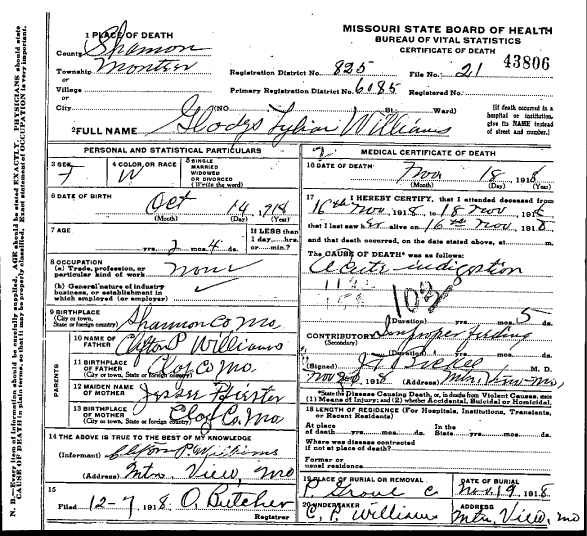 MISSOURI STATE BOARD OF HEALTH
BUREAU OF VITAL STATISTICS
CERTIFICATE OF DEATH
43806
1 PLACE OF DEATH
County Shannon
Township Montier
or
Village
or
City (NO. St. Ward)
Registration District No. 825 File No. 21
Primary Registration District No. 6085 Registered No.
[If death occurred in a hospital or institution, give its NAME instead of street and number.]
2 FULL NAME Gladys Williams
PERSONAL AND STATISTICAL PARTICULARS
3 SEX F
4 COLOR OR RACE W
5 SINGLE MARRIED WIDOWED OR DIVORCED (Write the word)
6 DATE OF BIRTH Oct 14, 1918
(Month) (Day) (Year)
7 AGE
yrs. 2 mos. 4 ds.
If LESS than 1 day, hrs. or min.?
8 OCCUPATION
(a) Trade, profession, or particular kind of work None
(b) General nature of industry, business, or establishment in which employed (or employer)
9 BIRTHPLACE
(City or town, State or foreign country) Shannon Co Mo.
PARENTS
10 NAME OF FATHER Clifton P Williams
11 BIRTHPLACE OF FATHER
(City or town, State or foreign country) Co Mo.
12 MAIDEN NAME OF MOTHER
13 BIRTHPLACE OF MOTHER
(City or town, State or foreign country) Co. Mo
14 THE ABOVE IS TRUE TO THE BEST OF MY KNOWLEDGE
(Informant) Clifton P Williams
(Address) Mtn. View, Mo
15
Filed 12-7, 1918 O. Butcher
Registrar
MEDICAL CERTIFICATE OF DEATH
16 DATE OF DEATH Nov 18, 1918
(Month) (Day) (Year)
17 I HEREBY CERTIFY, that I attended deceased from
16th Nov, 1918, to 18 Nov, 1918
that I last saw her alive on 16th Nov, 1918
and that death occurred, on the date stated above, at m.
The CAUSE OF DEATH* was as follows:
Acute indigestion
102
(Duration) yrs. mos. 5 ds.
CONTRIBUTORY Improper feeding
(Secondary)
(Duration) yrs. mos. ds.
(Signed) M. D.
Nov, 1918 (Address) Mtn View Mo,
*State the Disease Causing Death, or, in deaths from Violent Causes, state (1) Means of Injury; and (2) whether Accidental, Suicidal or Homicidal.
18 LENGTH OF RESIDENCE (For Hospitals, Institutions, Transients, or Recent Residents)
At place of death yrs. mos. ds. In the State yrs. mos. ds.
Where was disease contracted if not at place of death?
Former or usual residence
19 PLACE OF BURIAL OR REMOVAL P. Grove C.
DATE OF BURIAL Nov. 19 1918
20 UNDERTAKER C. P. William
ADDRESS Mtn. View, Mo
N. B.—Every item of information should be carefully supplied. AGE should be stated EXACTLY. PHYSICIANS should state
CAUSE OF DEATH in plain terms, so that it may be properly classified. Exact statement of OCCUPATION is very important.